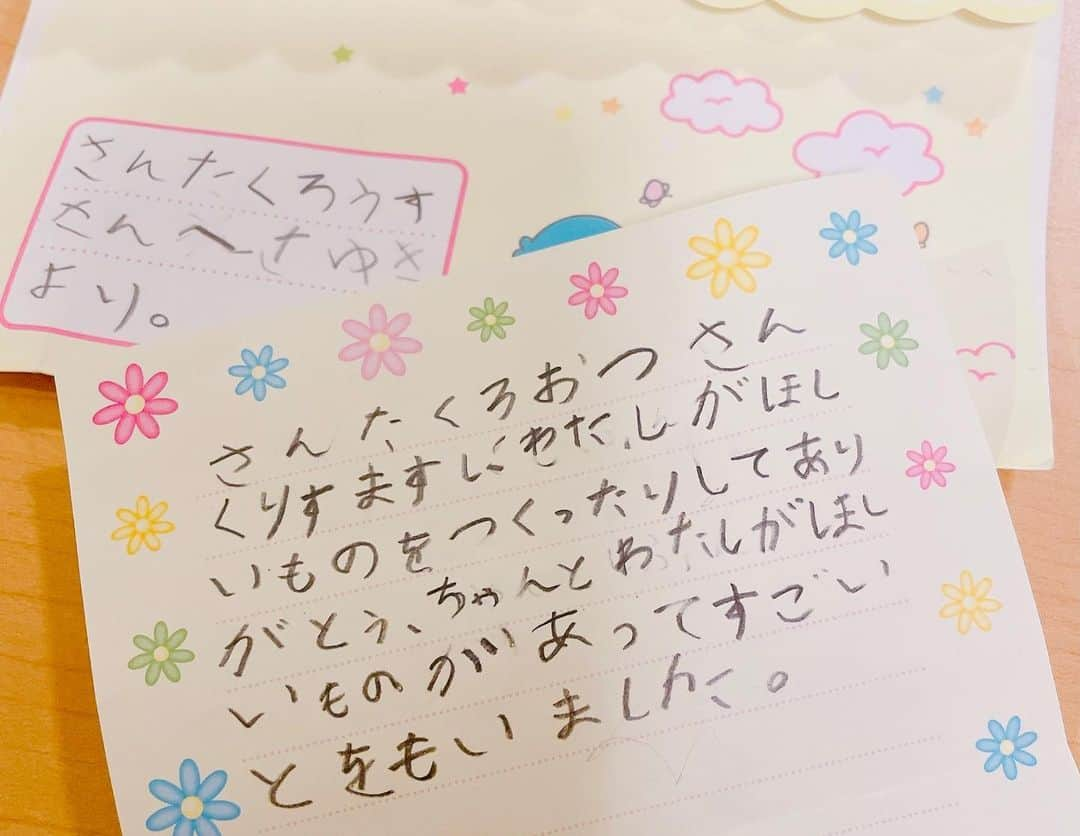 さんたくろうす
さんへさゆき
より。
さんたくろおつさん
くりすますにわたしがほし
いものをつくったりしてあり
がとう、ちゃんとわたしがほし
いものがあってすごい
とをもいました。